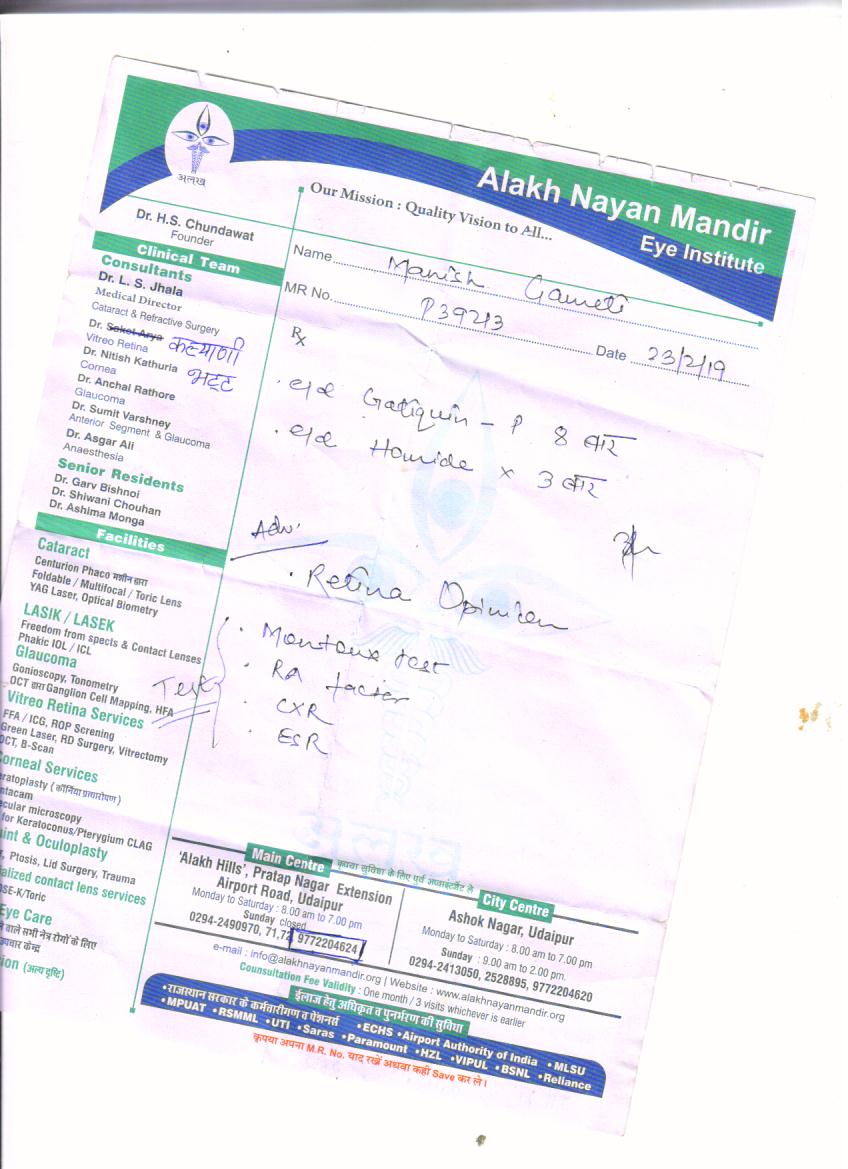 अलख
Alakh Nayan Mandir
Eye Institute
Our Mission : Quality Vision to All...
Dr. H.S. Chundawat
Founder
Clinical Team
Consultants
Dr. L. S. Jhala
Medical Director
Cataract & Refractive Surgery
Dr. Saket Arya कल्याणी
Vitreo Retina भट्ट
Dr. Nitish Kathuria
Cornea
Dr. Anchal Rathore
Glaucoma
Dr. Sumit Varshney
Anterior Segment & Glaucoma
Dr. Asgar Ali
Anaesthesia
Senior Residents
Dr. Garv Bishnoi
Dr. Shiwani Chouhan
Dr. Ashima Monga
Facilities
Cataract
Centurion Phaco मशीन द्वारा
Foldable / Multifocal / Toric Lens
YAG Laser, Optical Biometry
LASIK / LASEK
Freedom from spects & Contact Lenses
Phakic IOL / ICL
Glaucoma
Gonioscopy, Tonometry
OCT द्वारा Ganglion Cell Mapping, HFA
Vitreo Retina Services
FFA / ICG, ROP Screning
Green Laser, RD Surgery, Vitrectomy
OCT, B-Scan
orneal Services
eratoplasty (कॉर्निया प्रत्यारोपण)
ntacam
ecular microscopy
for Keratoconus/Pterygium CLAG
int & Oculoplasty
, Ptosis, Lid Surgery, Trauma
alized contact lens services
OSE-K/Toric
Eye Care
वाले सभी नेत्र रोगों के लिए
उपचार केन्द्र
ion (अल्प दृष्टि)
Name Manish Gameti
MR No. P39213
Date 23/2/19
Rx
e/d Gatiquin - P 8 बार
e/d Homide x 3 बार
Adv.
Retina Opinion
Test
Montoux test
RA factor
CXR
ESR
अलख
कृपया सुविधा के लिए पूर्व अपॉइन्टमेंट ले
Main Centre
'Alakh Hills', Pratap Nagar Extension
Airport Road, Udaipur
Monday to Saturday : 8.00 am to 7.00 pm
Sunday closed
0294-2490970, 71,72 9772204624
City Centre
Ashok Nagar, Udaipur
Monday to Saturday : 8.00 am to 7.00 pm
Sunday : 9.00 am to 2.00 pm.
0294-2413050, 2528895, 9772204620
e-mail : info@alakhnayanmandir.org | Website : www.alakhnayanmandir.org
Counsultation Fee Validity : One month / 3 visits whichever is earlier
ईलाज हेतु अधिकृत व पुनर्भरण की सुविधा
•राजस्थान सरकार के कर्मचारीगण व पेंशनर्स •ECHS •Airport Authority of India •MLSU
•MPUAT •RSMML •UTI •Saras •Paramount •HZL •VIPUL •BSNL •Reliance
कृपया अपना M.R. No. याद रखें अथवा कही Save कर ले।